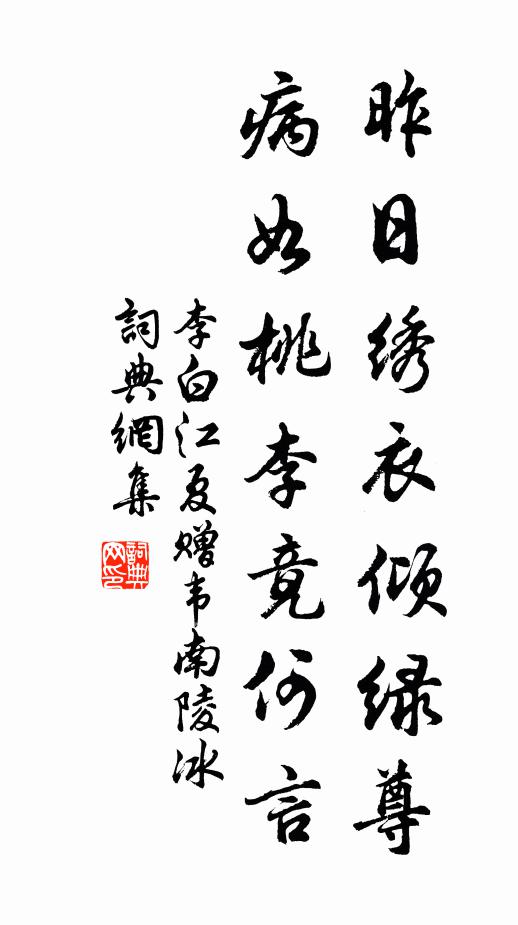 昨日绣衣倾绿尊
病如桃李竟何言
李白江夏赠韦南陵冰
詞典網集
詞典网印